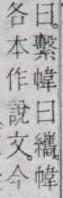 曰。繫幃曰纗。幃
各本作說文。今